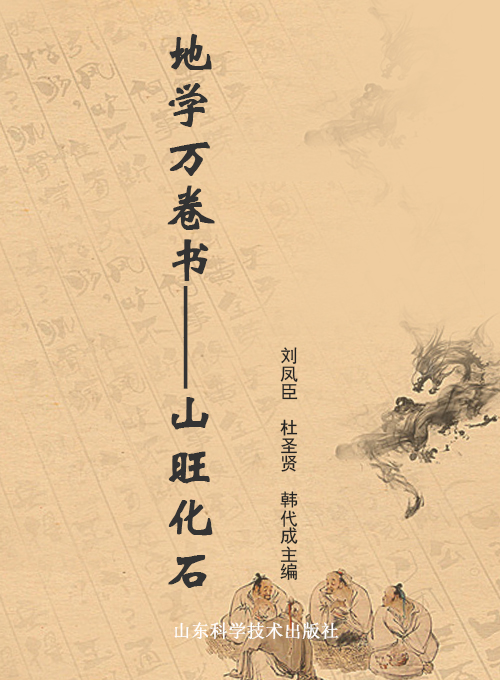 地学万卷书——山旺化石
刘凤臣 杜圣贤 韩代成主编
山东科学技术出版社